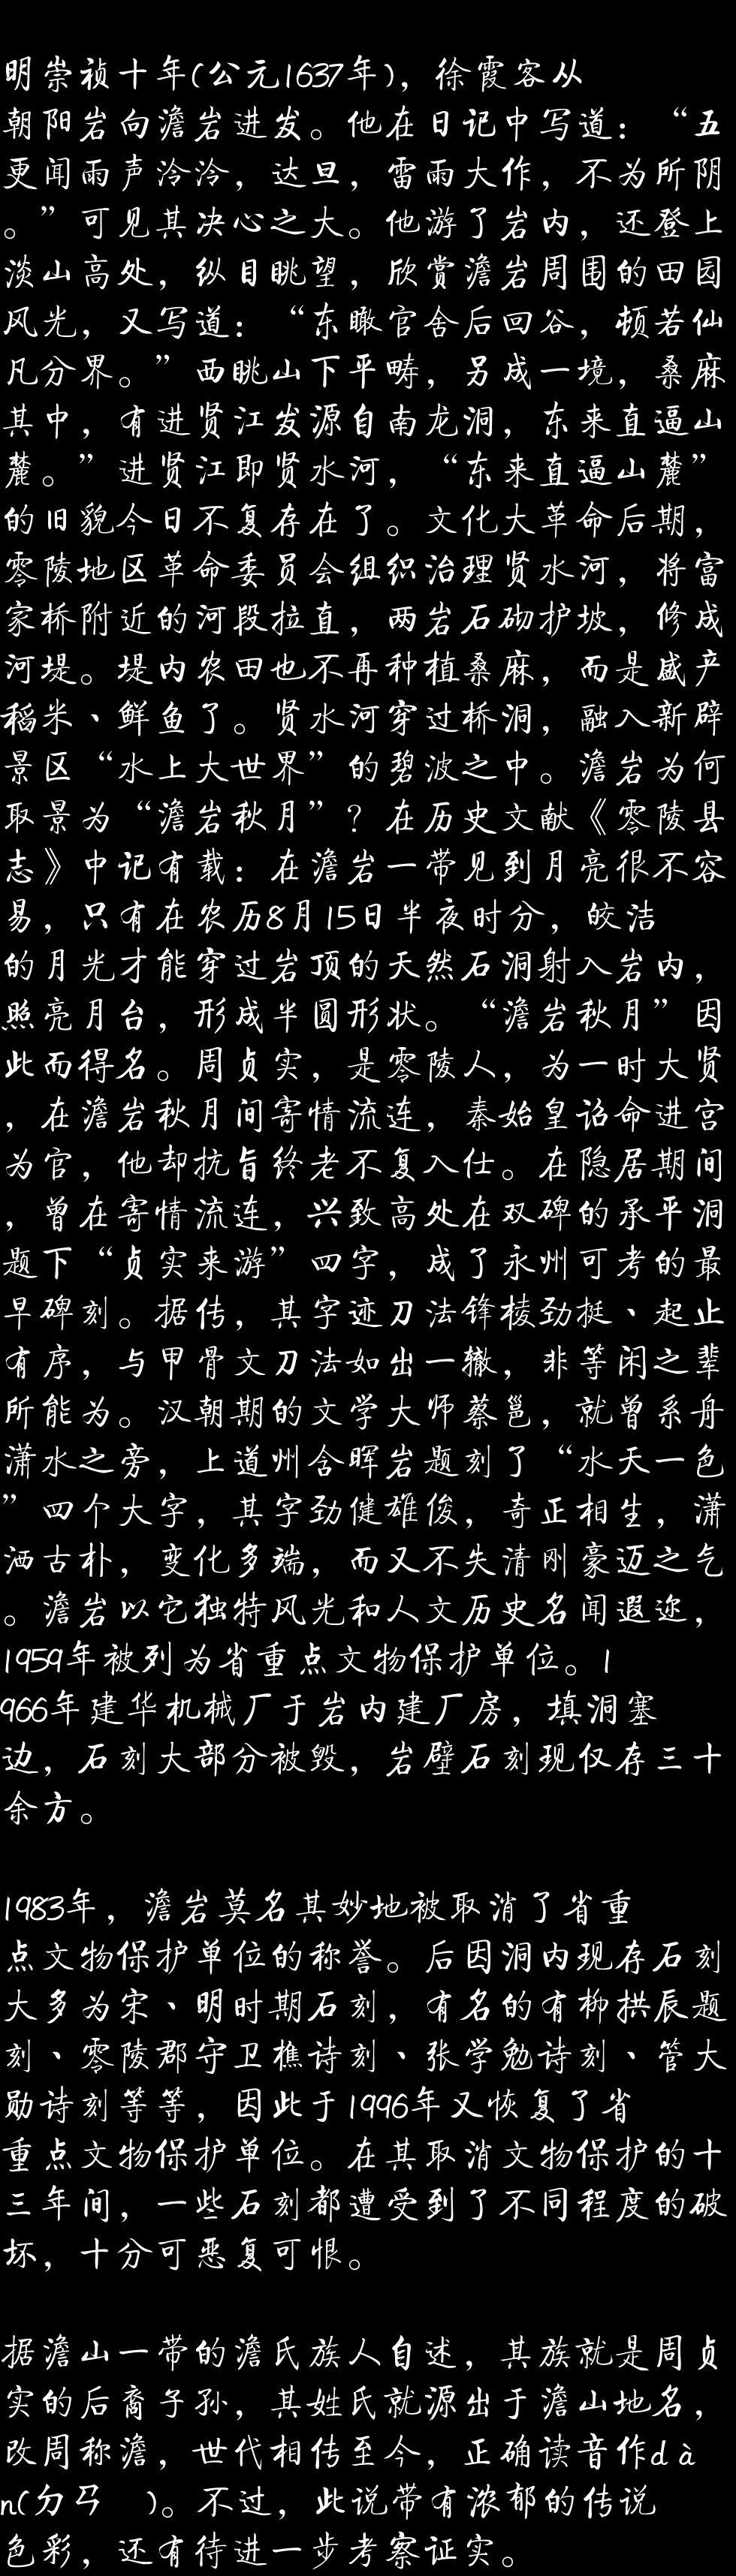 明崇祯十年(公元1637年)，徐霞客从
朝阳岩向澹岩进发。他在日记中写道：“五
更闻雨声泠泠，达旦，雷雨大作，不为所阴
。”可见其决心之大。他游了岩内，还登上
淡山高处，纵目眺望，欣赏澹岩周围的田园
风光，又写道：“东瞰官舍后回谷，顿若仙
凡分界。”西眺山下平畴，另成一境，桑麻
其中，有进贤江发源自南龙洞，东来直逼山
麓。”进贤江即贤水河，“东来直逼山麓”
的旧貌今日不复存在了。文化大革命后期，
零陵地区革命委员会组织治理贤水河，将富
家桥附近的河段拉直，两岩石砌护坡，修成
河堤。堤内农田也不再种植桑麻，而是盛产
稻米、鲜鱼了。贤水河穿过桥洞，融入新辟
景区“水上大世界”的碧波之中。澹岩为何
取景为“澹岩秋月”？在历史文献《零陵县
志》中记有载：在澹岩一带见到月亮很不容
易，只有在农历8月15日半夜时分，皎洁
的月光才能穿过岩顶的天然石洞射入岩内，
照亮月台，形成半圆形状。“澹岩秋月”因
此而得名。周贞实，是零陵人，为一时大贤
，在澹岩秋月间寄情流连，秦始皇诏命进宫
为官，他却抗旨终老不复入仕。在隐居期间
，曾在寄情流连，兴致高处在双碑的承平洞
题下“贞实来游”四字，成了永州可考的最
早碑刻。据传，其字迹刀法锋棱劲挺、起止
有序，与甲骨文刀法如出一辙，非等闲之辈
所能为。汉朝期的文学大师蔡邕，就曾系舟
潇水之旁，上道州含晖岩题刻了“水天一色
”四个大字，其字劲健雄俊，奇正相生，潇
洒古朴，变化多端，而又不失清刚豪迈之气
。澹岩以它独特风光和人文历史名闻遐迩，
1959年被列为省重点文物保护单位。1
966年建华机械厂于岩内建厂房，填洞塞
边，石刻大部分被毁，岩壁石刻现仅存三十
余方。
1983年，澹岩莫名其妙地被取消了省重
点文物保护单位的称誉。后因洞内现存石刻
大多为宋、明时期石刻，有名的有柳拱辰题
刻、零陵郡守卫樵诗刻、张学勉诗刻、管大
勋诗刻等等，因此于1996年又恢复了省
重点文物保护单位。在其取消文物保护的十
三年间，一些石刻都遭受到了不同程度的破
坏，十分可恶复可恨。
据澹山一带的澹氏族人自述，其族就是周贞
实的后裔子孙，其姓氏就源出于澹山地名，
改周称澹，世代相传至今，正确读音作dà
n(ㄉㄢ　)。不过，此说带有浓郁的传说
色彩，还有待进一步考察证实。